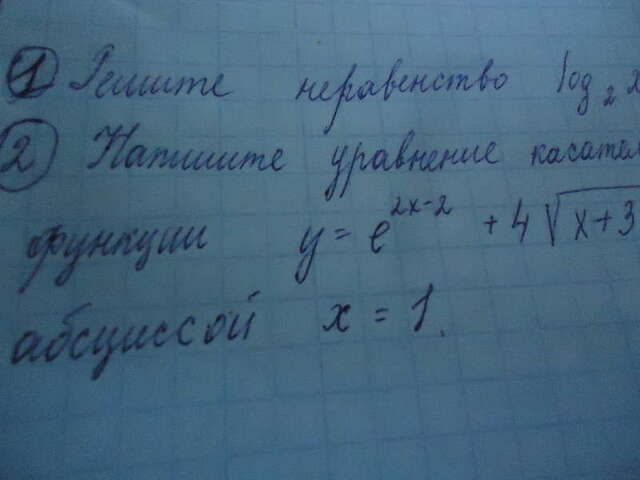 ① Решите неравенство log₂ x
② Напишите уравнение касател
функции y = e^{2x-2} + 4√(x+3
абсциссой x = 1.